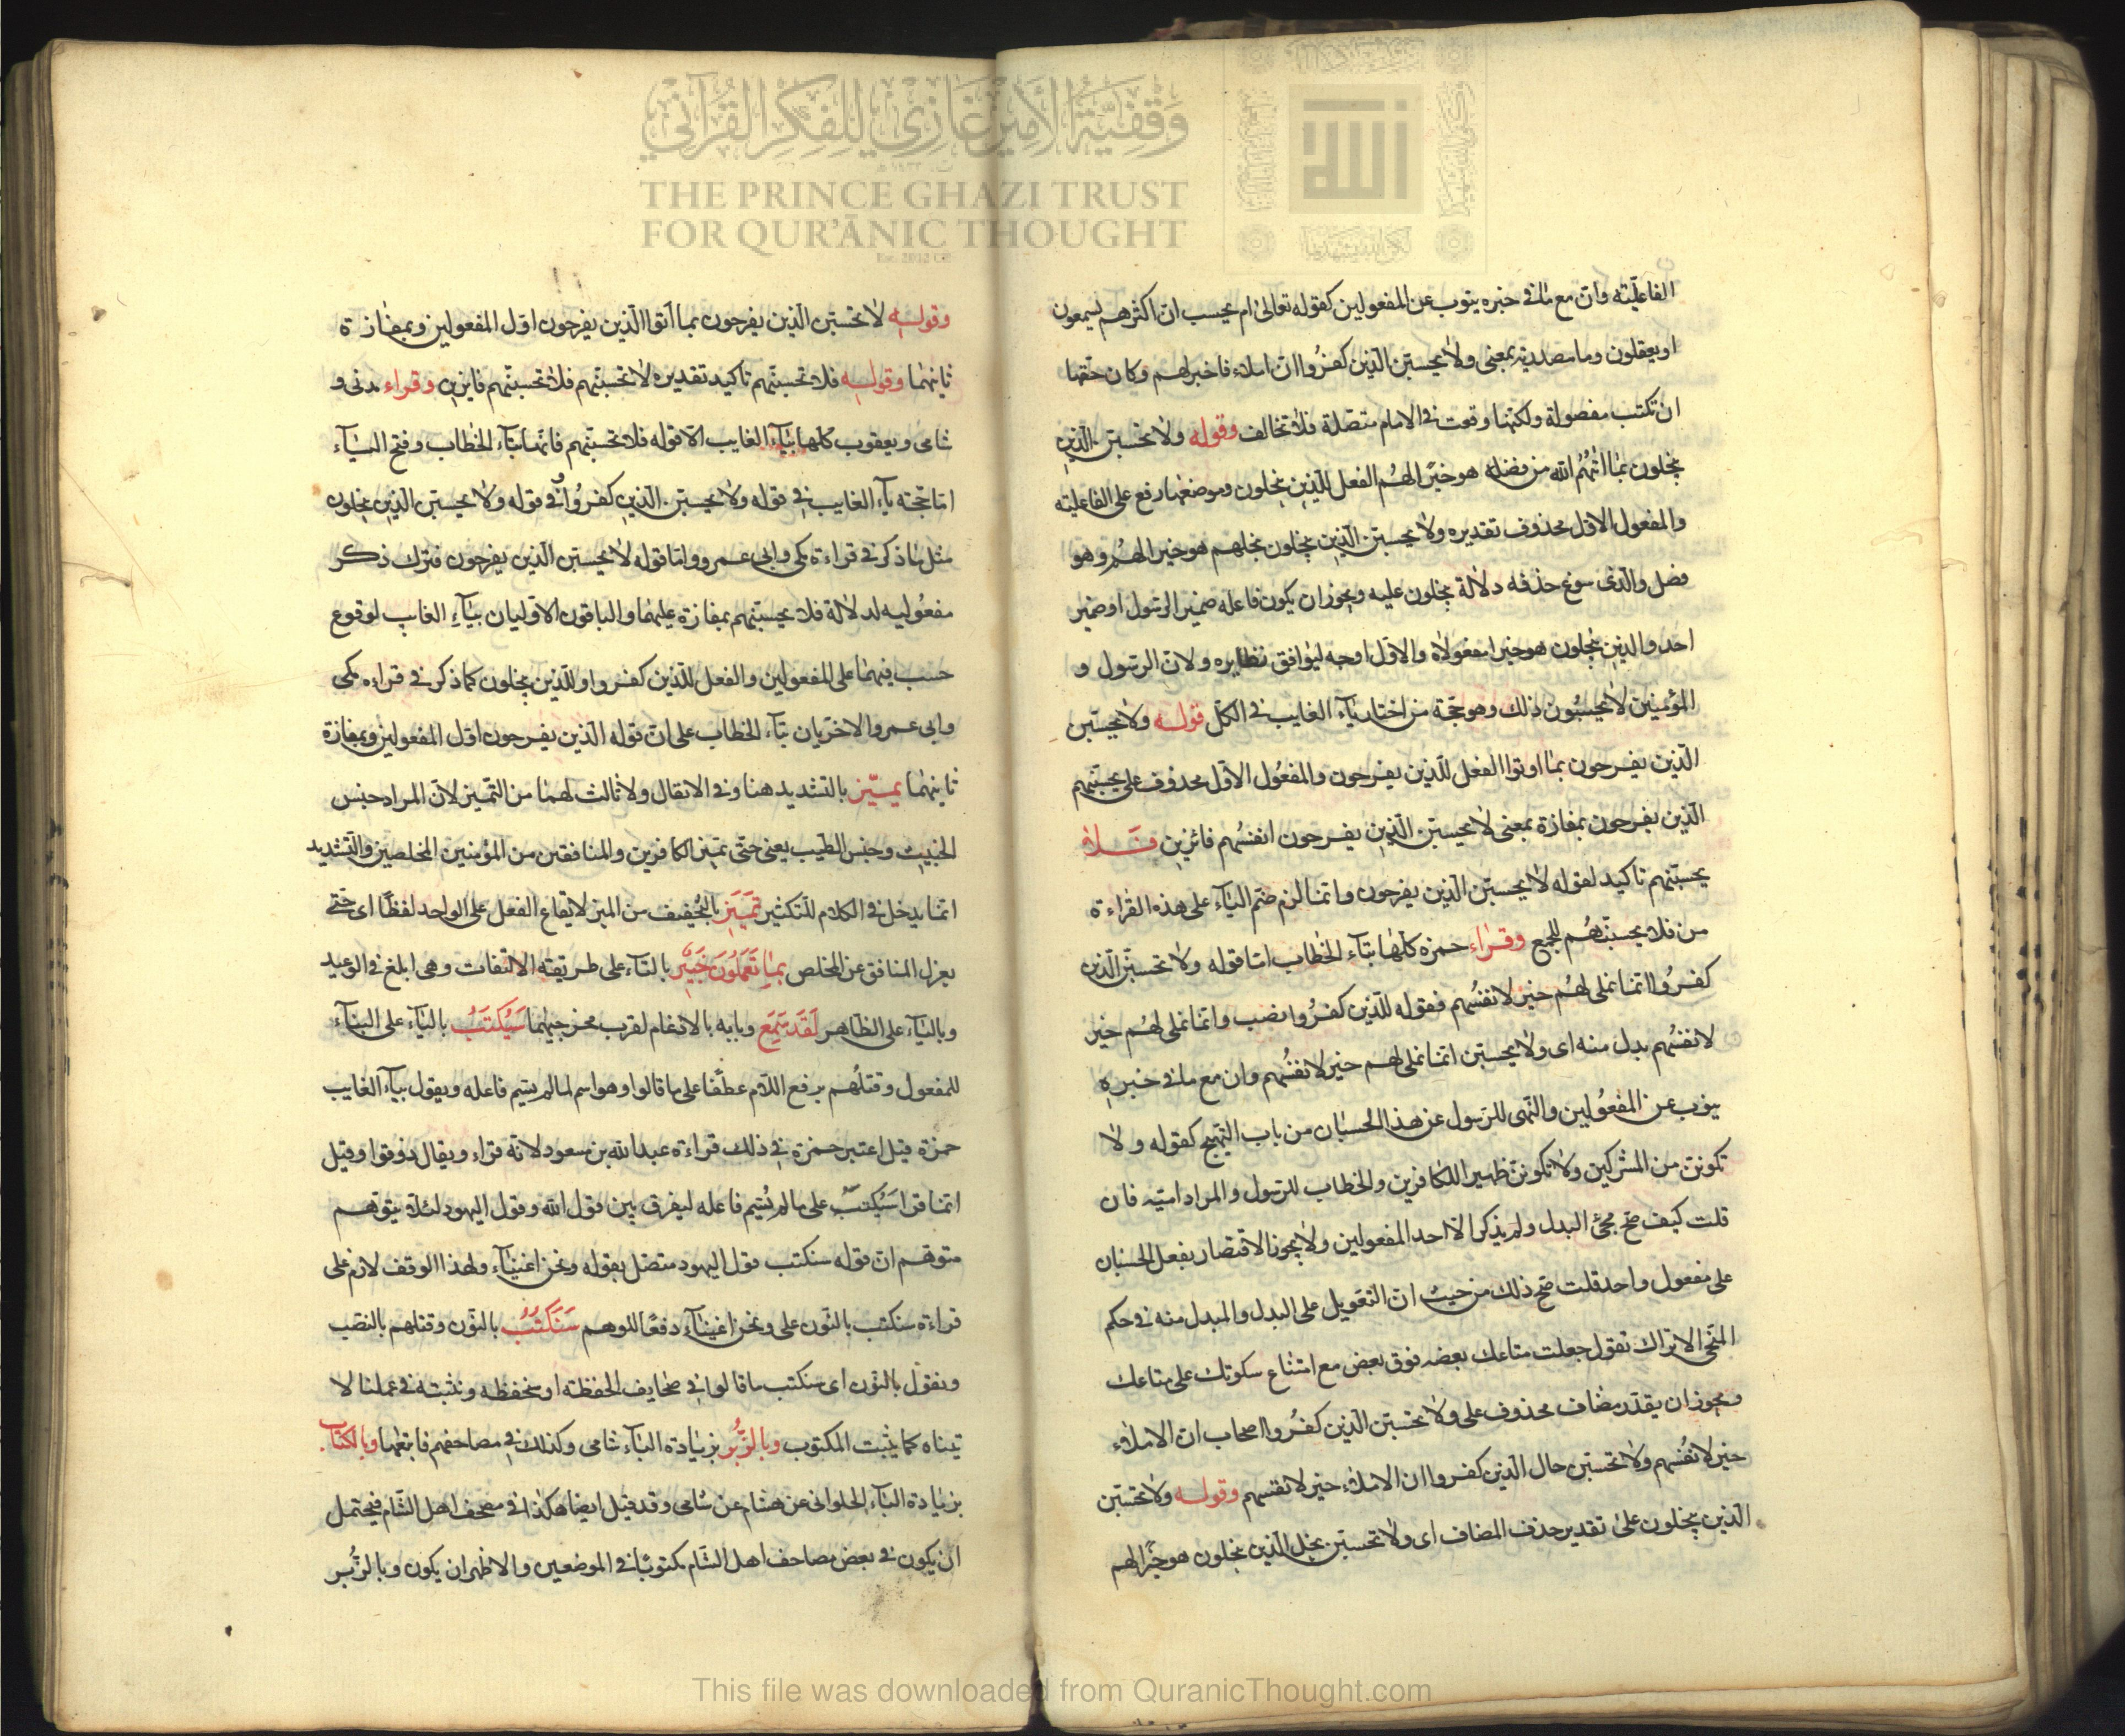 وقفية الأمير غازي للفكر القرآني
THE PRINCE GHAZI TRUST
FOR QUR'ĀNIC THOUGHT
Est. 2012 CE
الله
الفاعليّته وانّ مع ما فى خبره ينوب عن المفعولين كقوله تعالى ام يحسب انّ اكثرهم يسمعون
او يعقلون وما مصدريّة بمعنى ولا يحسبنّ الّذين كفروا انّ املاء فا خبر لهم وكان حقّها
ان تكتب مفصولة ولكنّها وقعت فى الامام متصّلة فلا تخالف وقوله ولا تحسبنّ الّذين
يبخلون بما اتٰهُم الله من فضله هو خيرًا لهُم الفعل للّذين يبخلون وموضعها رفع على الفاعليته
والمفعول الاوّل محذوف تقديره ولا يحسبنّ الّذين يبخلون بخلهم هو خيرا لهُم وهو
فصل والّذى سوغ حذفه دلالة يبخلون عليه ويجوز ان يكون فاعله ضمير الرسول او ضمير
احد والذين يبخلون هو خيرا مفعولاه والاوّل اوجه ليوافق نظايره ولانّ الرسول و
المؤمنين لا يحسبُون ذلك وهو حجّة من اختار ياء الغايب فى الكلّ قوله ولا يحسبّن
الّذين يفرحون بما اوتوا الفعل للّذين يفرحون والمفعُول الاوّل محذوف على يحسبّنهم
الّذين يفرحون بمفازة بمعنى لا يحسبنّ الّذين يفرحون انفسُهم فائزين فَلاٰ
يحسبّنهم تاكيد لقوله لا يحسبّن الّذين يفرحون وانما لزم ضمّ الباء على هذه القراءة
من فلا يحسبّنهُم للجمع وقراء حمزه كلّها بتاء الخطاب امّا قوله ولا تحسبنّ الّذين
كفرُوا انّما نملى لهُم خير لانفسُهم فقوله للّذين كفرُوا نصب وانّما نملى لهُم خير
لانفسُهم بدل منه اى ولا يحسبّن انّما نملى لهم خير لانفسُهم وان مع ما فى خبره
ينوب عن المفعُولين والنّهى للرسول عن هذا الحسبان من باب التهيج كقوله ولا
تكوننّ من المشركين ولا تكوننّ ظهيرا للكافرين والخطاب للرسول والمراد امتيه فان
قلت كيف صحّ مجئ البدل ولم يذكر الّا احد المفعولين ولا يجوز الاقتصار بفعل الحسبان
على مفعول واحد قلت صحّ ذلك من حيث انّ التعويل على البدل والمبدل منه فى حكم
المنحّى الا تراك تقول جعلت متاعك بعضه فوق بعض مع امتناع سكوتك على متاعك
ويجوز ان يقدّر مضاف محذوف على ولا تحسبّن الّذين كفرُوا اصحاب انّ الاملاء
خير لانفسُهم ولا تحسبّن حال الّذين كفروا انّ الاملاء خير لانفسهم وقوله ولا تحسبّن
الّذين يبخلون على تقدير حذف المضاف اى ولا تحسبّن بخل الّذين يبخلون هو خيرًا لهم
وقوله لا تحسبّن الّذين يفرحون بما اتوا الّذين يفرحون اوّل المفعولين وبمفازة
ثانيهما وقوله فلا تحسبنّهم تاكيد تقديره لا تحسبنّهم فلا تحسبنّهم فايزين وقراء مدنى و
شامى ويعقوب كلها بياء الغايب الّا قوله فلا تحسبّنهم فانّها بتاء الخطاب وفتح الباء
امّا حجّته ياء الغايب فى قوله ولا يحسبّن الّذين كفروُا وفى قوله ولا يحسبّن الّذين يبخلون
مثل ما ذكر فى قراءة مكى وابى عمرو وامّا قوله لا يحسبّن الّذين يفرحون فترك ذكر
مفعُوليه لدلالة فلا يحسبنّهم بمفازة عليهما والباقون الاوّليان بياء الغايب لوقوع
حسب فيهما على المفعولين والفعل للّذين كفروا وللّذين يبخلون كما ذكر فى قراءه مكى
وابى عمرو والاخريان بتاء الخطاب على انّ قوله الّذين يفرحون اوّل المفعولين وبمفازة
ثانيهما يميّز بالتشديد هنا وفى الانفال ولا ثالث لهما من التّميز لانّ المراد جنس
الخبيث وجنس الطّيب يعنى حتّى تميّز الكافرين والمنافقين من المؤمنين المخلصين والتّشديد
انّما يدخل فى الكلام للتكثير تَمِيَزِ بالتّخفيف من الميز لايقاع الفعل على الواحد لفظًا اى حتّى
يعزل المنافق عن المخلص بمٰا تَعمَلُونَ خَبيرٌ بالتاء على طريقته الالتفات وهى ابلغ فى الوعيد
وبالياء على الظّاهر لَقَد سَمِعَ وبابه بالادغام لقرب مخرجيهما سَيُكتَبُ بالياء على البناء
للمفعول وقتلُهم برفع اللّام عطفًا على ما قالوا وهو اسم لما لم يسّم فاعله ويقول بياء الغايب
حمزة قيل اعتبر حمزة فى ذلك قراءة عبد الله بن مسعود لانّه قراء ويقال ذوقوا وقيل
انّما قرا سَيُكتبُ على ما لم يُسّم فاعله ليفرق بين قول الله وقول اليهود لئلّا يتوّهم
متوّهم انّ قوله سنكتب قول اليهود متصّل بقوله ونحن اغنياء ولهذا الوقف لازم على
قراءة سنكتب بالنّون على ونحن اغنياء دفعًا للوهم سَنَكتُبُ بالنّون وقتلهم بالنصّب
ونقول بالنّون اى سنكتب ما قالوا فى صحايف الحفظة او سنحفظه ونثبته فى عملنا لا
ننساه كما يثبت المكتوب وبالزُّبُر بزيادة الباء شامى وكذلك فى مصاحفهم فاتبعها وبالكتاب
بزيادة الباء الحلوانى عن هشام عن شامى وقد قيل ايضا هكذا فى مصحف اهل الشّام فيحتمل
ان يكون فى بعض مصاحف اهل الشّام مكتوبًا فى الموضعين والاظهر ان يكون وبالزُّبر
This file was downloaded from QuranicThought.com